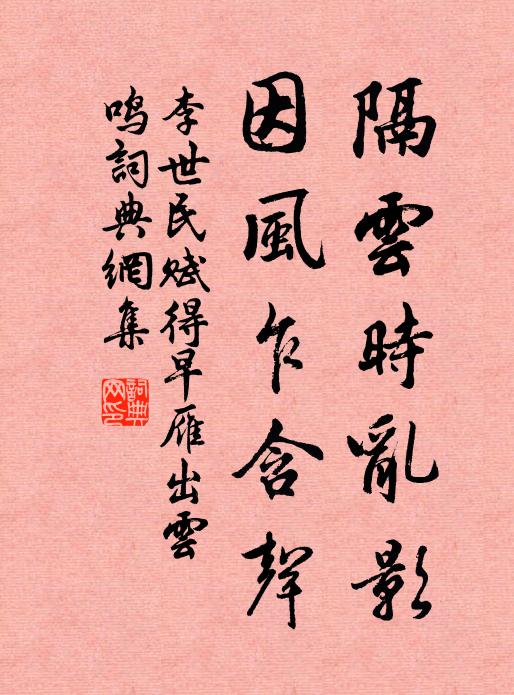 隔雲時亂影
因風乍含聲
李世民賦得早雁出雲
鳴詞典網集
詞典網印